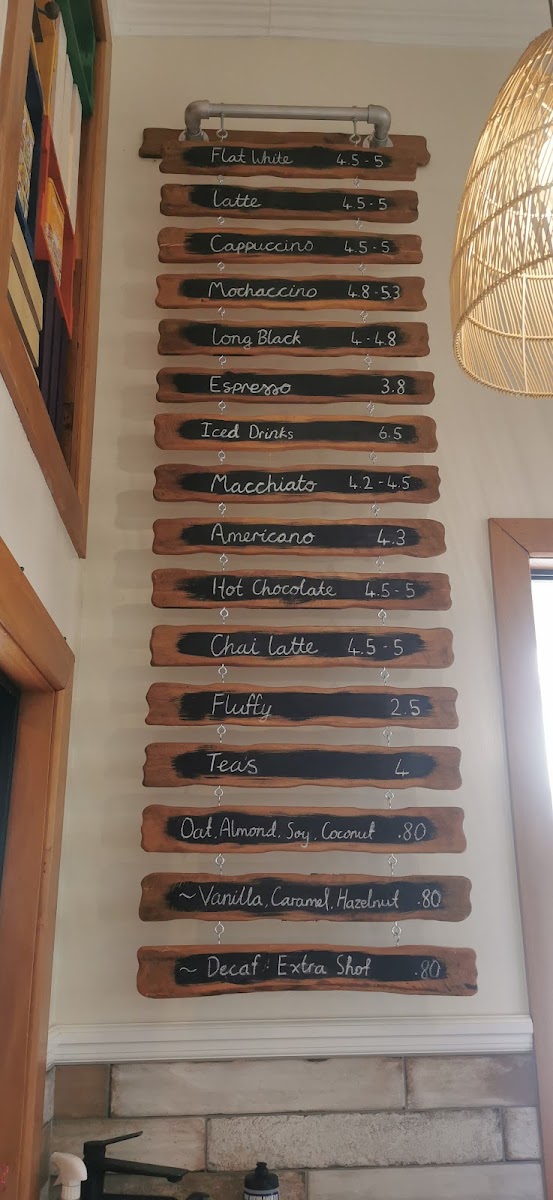 Flat White 4.5 - 5
Latte 4.5 - 5
Cappuccino 4.5 - 5
Mochaccino 4.8 - 5.3
Long Black 4 - 4.8
Espresso 3.8
Iced Drinks 6.5
Macchiato 4.2 - 4.5
Americano 4.3
Hot Chocolate 4.5 - 5
Chai Latte 4.5 - 5
Fluffy 2.5
Teas 4
Oat, Almond, Soy, Coconut .80
~ Vanilla, Caramel, Hazelnut .80
~ Decaf : Extra Shot .80